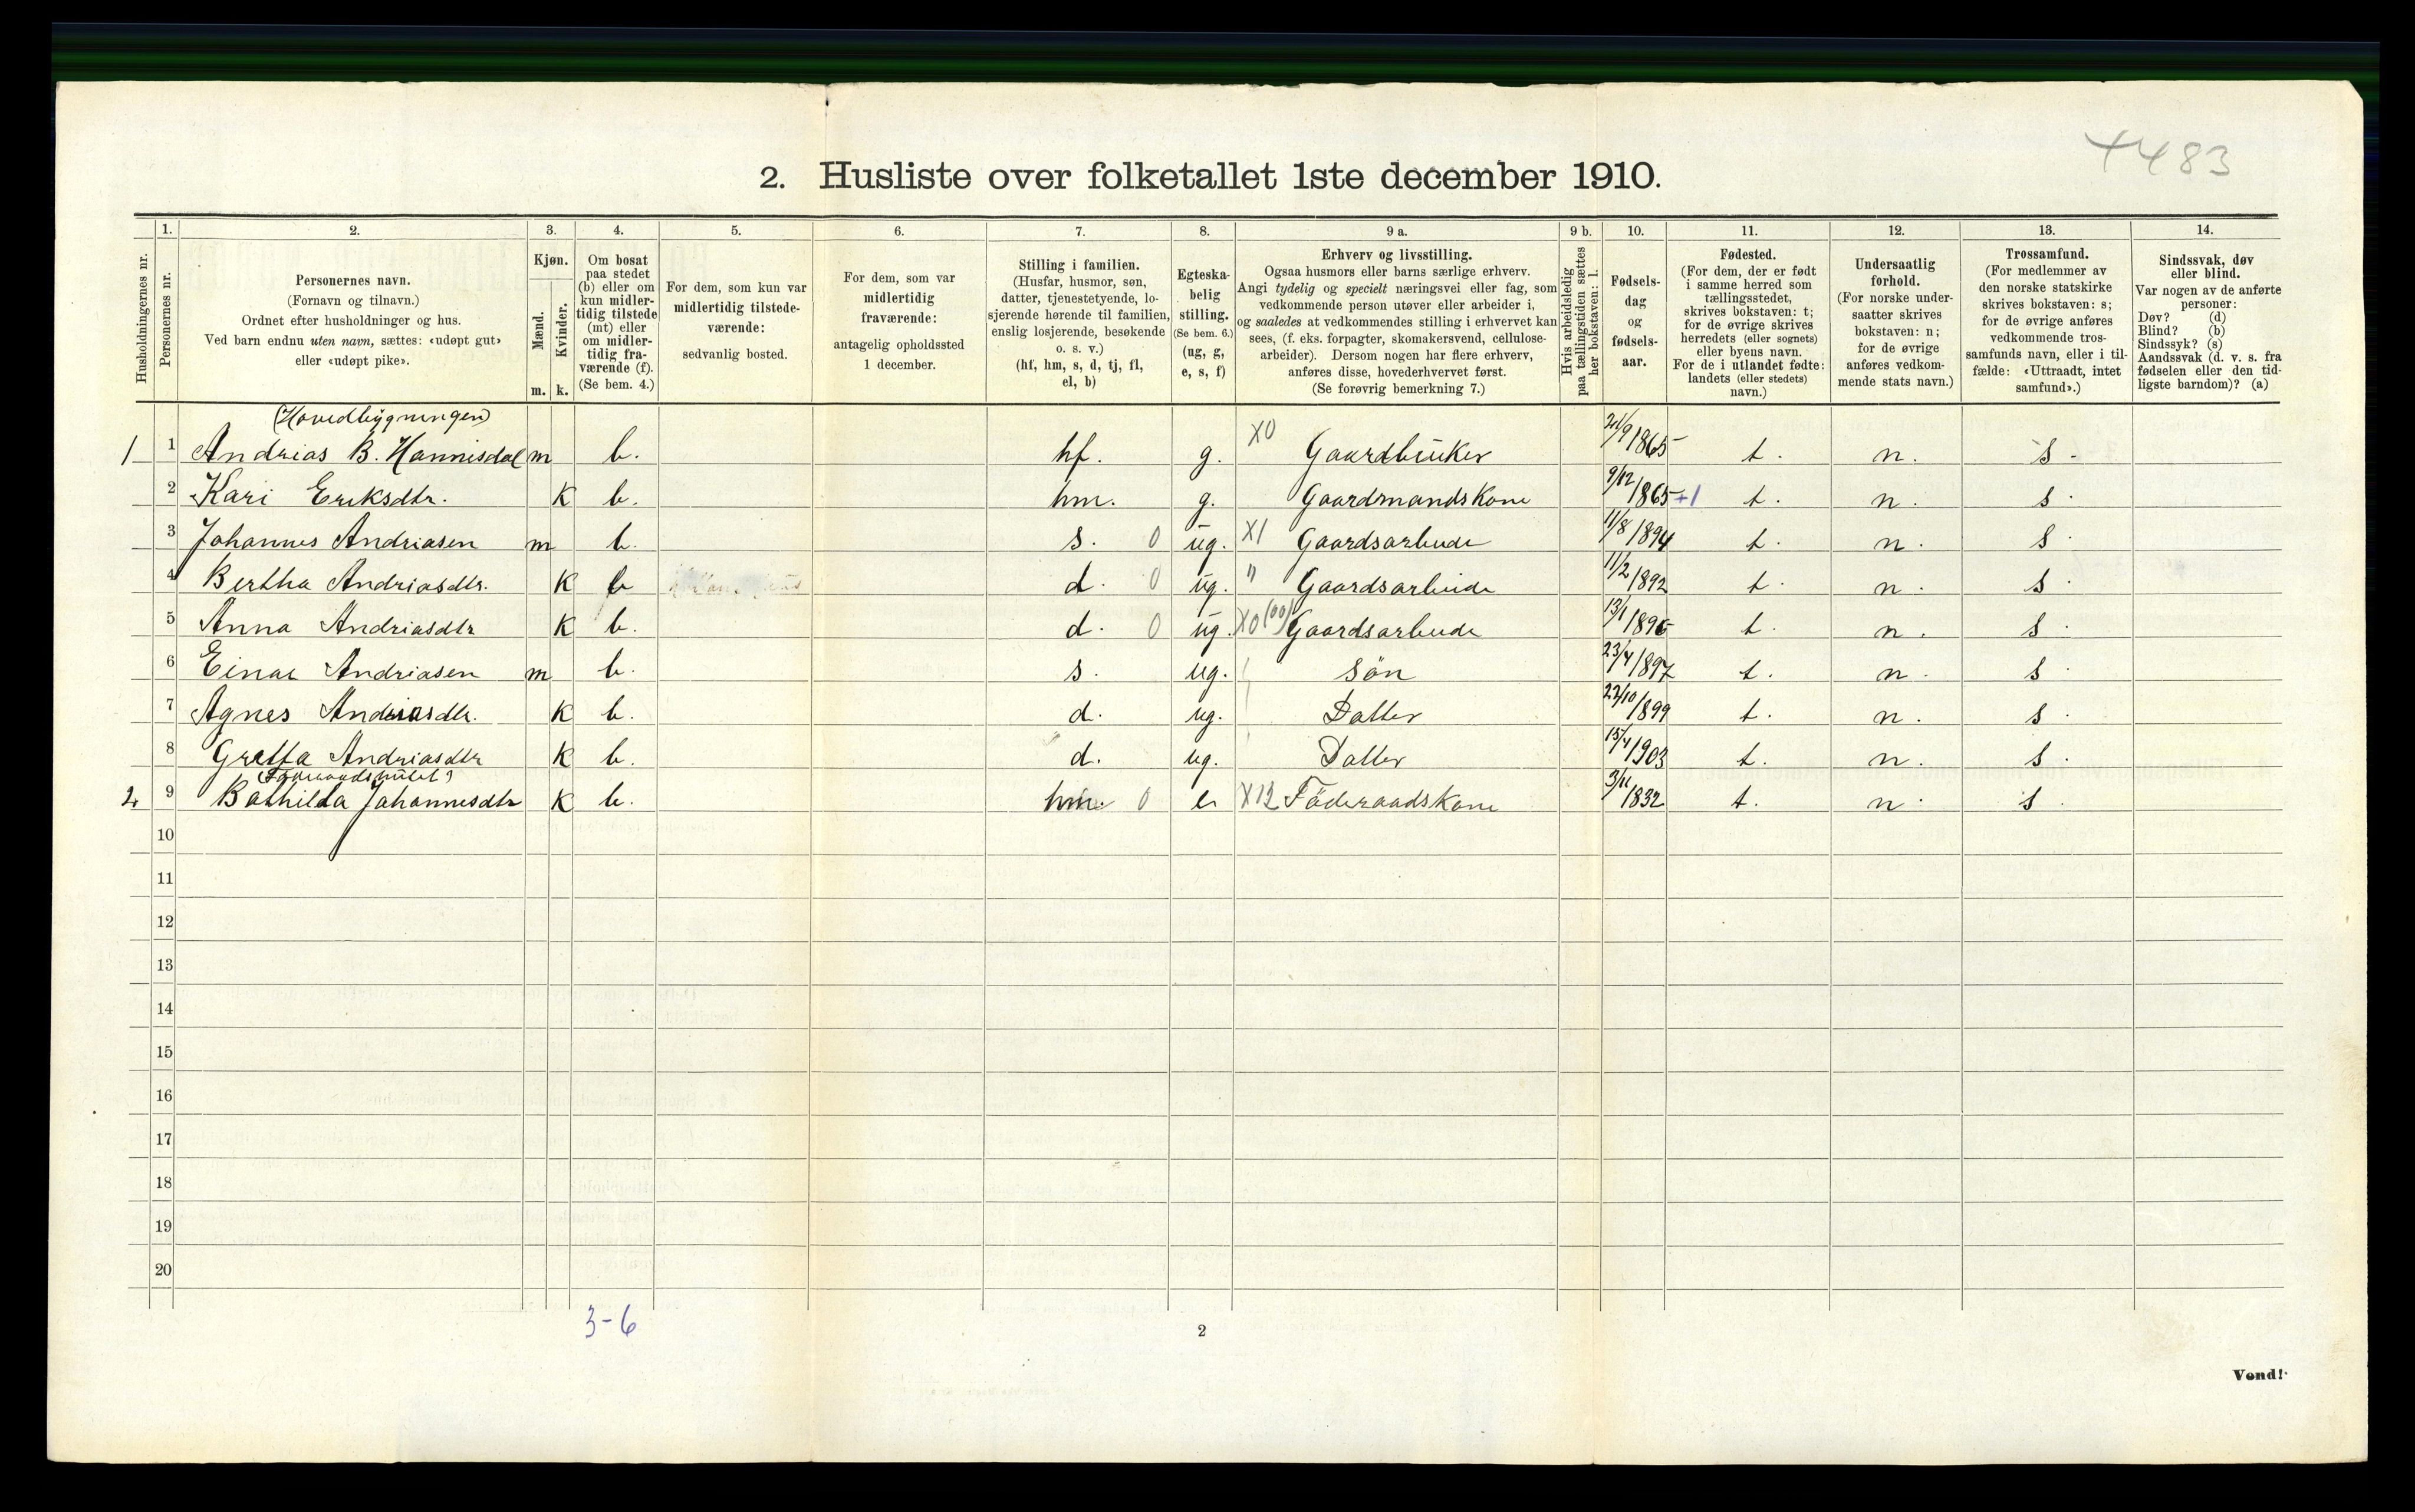 4483
2. Husliste over folketallet 1ste december 1910.
Husholdningernes nr.
1.
Personernes nr.
2.
Personernes navn.
(Fornavn og tilnavn.)
Ordnet efter husholdninger og hus.
Ved barn endnu uten navn, sættes: «udøpt gut»
eller «udøpt pike».
3.
Kjøn.
Mænd.
Kvinder.
m. k.
4.
Om bosat
paa stedet
(b) eller om
kun midler-
tidig tilstede
(mt) eller
om midler-
tidig fra-
værende (f).
(Se bem. 4.)
5.
For dem, som kun var
midlertidig tilstede-
værende:
sedvanlig bosted.
6.
For dem, som var
midlertidig
fraværende:
antagelig opholdssted
1 december.
7.
Stilling i familien.
(Husfar, husmor, søn,
datter, tjenestetyende, lo-
sjerende hørende til familien,
enslig losjerende, besøkende
o. s. v.)
(hf, hm, s, d, tj, fl,
el, b)
8.
Egteska-
belig
stilling.
(Se bem. 6.)
(ug, g,
e, s, f)
9 a.
Erhverv og livsstilling.
Ogsaa husmors eller barns særlige erhverv.
Angi tydelig og specielt næringsvei eller fag, som
vedkommende person utøver eller arbeider i,
og saaledes at vedkommendes stilling i erhvervet kan
sees, (f. eks. forpagter, skomakersvend, cellulose-
arbeider). Dersom nogen har flere erhverv,
anføres disse, hovederhvervet først.
(Se forøvrig bemerkning 7.)
9 b.
Hvis arbeidsledig
paa tællingstiden sættes
her bokstaven: l.
10.
Fødsels-
dag
og
fødsels-
aar.
11.
Fødested.
(For dem, der er født
i samme herred som
tællingsstedet,
skrives bokstaven: t;
for de øvrige skrives
herredets (eller sognets)
eller byens navn.
For de i utlandet fødte:
landets (eller stedets)
navn.)
12.
Undersaatlig
forhold.
(For norske under-
saatter skrives
bokstaven: n;
for de øvrige
anføres vedkom-
mende stats navn.)
13.
Trossamfund.
(For medlemmer av
den norske statskirke
skrives bokstaven: s;
for de øvrige anføres
vedkommende tros-
samfunds navn, eller i til-
fælde: «Uttraadt, intet
samfund».)
14.
Sindssvak, døv
eller blind.
Var nogen av de anførte
personer:
Døv? (d)
Blind? (b)
Sindssyk? (s)
Aandssvak (d. v. s. fra
fødselen eller den tid-
ligste barndom)? (a)
(Hovedbygningen)
1 1 Andrias B. Hannisdal m b. hf. g. X0 Gaardbruker 21/9 1865 t. n. s.
2 Kari Eriksdtr. K b. hm. g. Gaardmandskone 9/12 1865 +1 t. n. s.
3 Johannes Andriasen m b. s. 0 ug. X1 Gaardsarbeide 11/8 1894 t. n. s.
4 Bertha Andriasdtr. K b d. 0 ug. " Gaardsarbeide 11/2 1892 t. n. s.
5 Anna Andriasdtr K b. d. 0 ug. X0 (00) Gaardsarbeide 13/1 1896 t. n. s.
6 Einar Andriasen m b. s. ug. Sön 23/4 1897 t. n. s.
7 Agnes Andriasdtr. K b. d. ug. Datter 22/10 1899 t. n. s.
8 Gretta Andriasdtr K b. d. ug. Datter 15/4 1903 t. n. s.
2 9 Bathilda Johannesdtr K b. hm. 0 e X12 Föderaadskone 3/11 1832 t. n. s.
10
11
12
13
14
15
16
17
18
19
20
3-6
2
Vend!